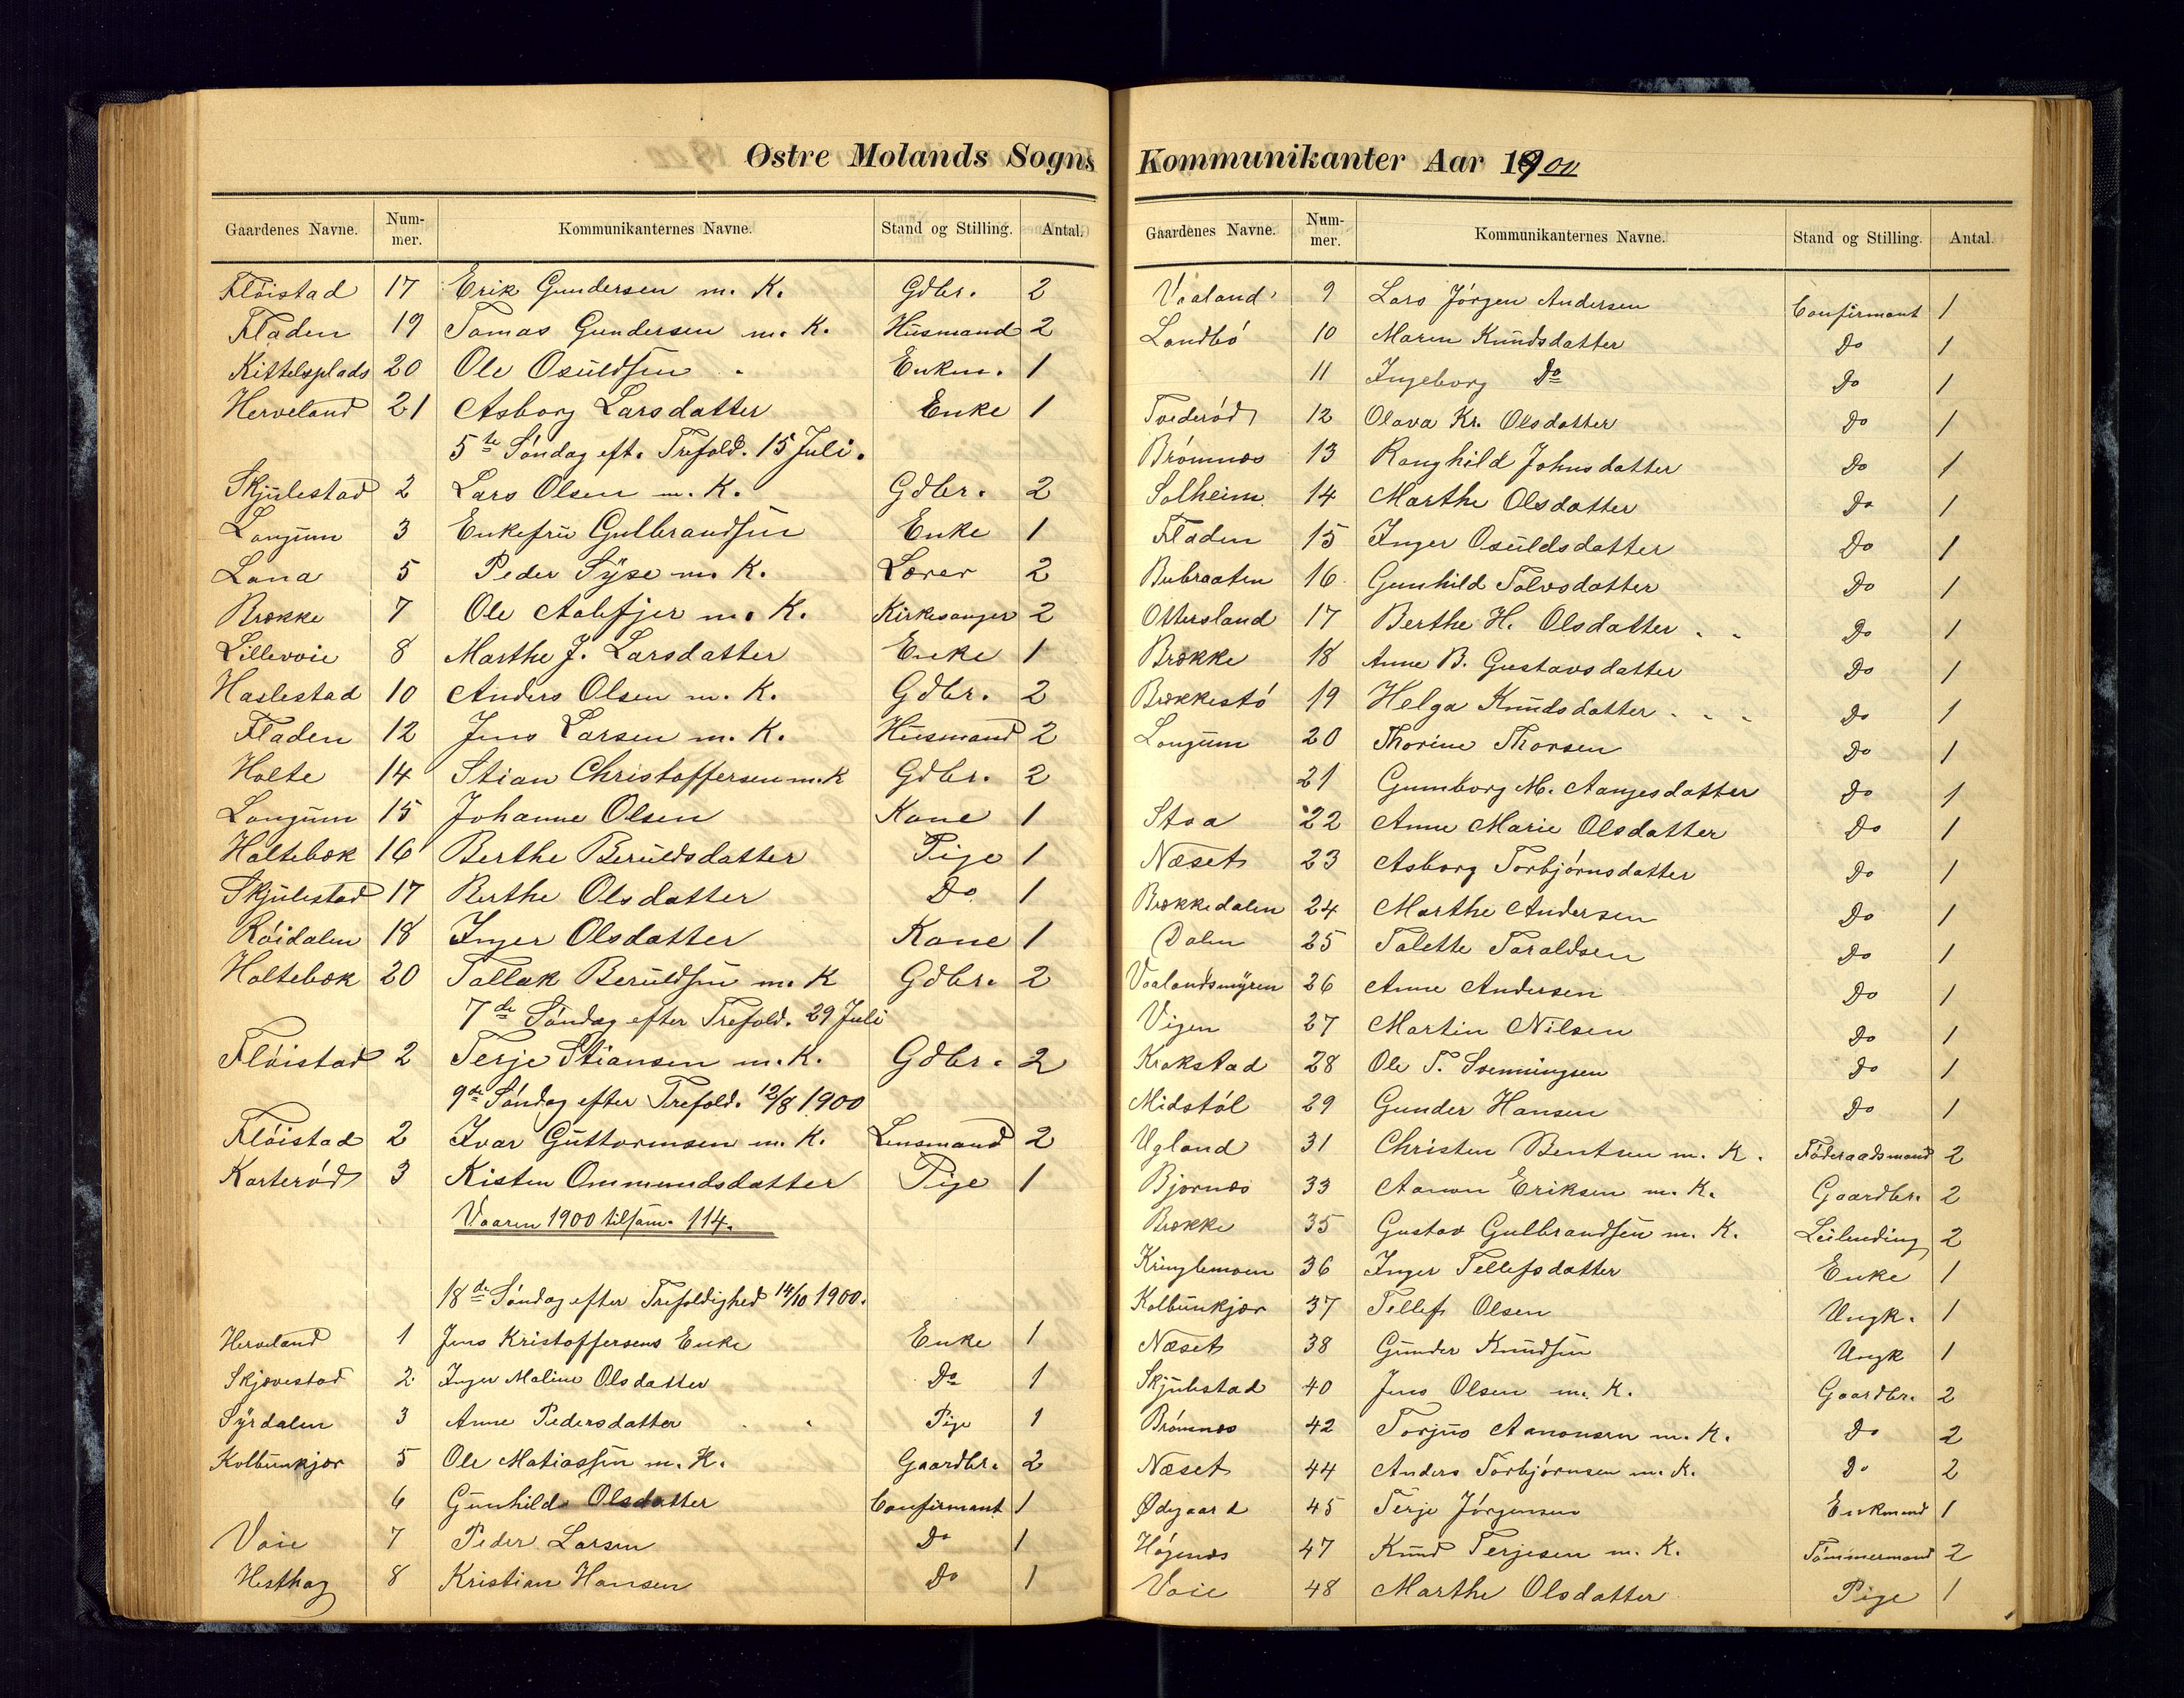 Østre Molands Sogns
Gaardenes Navne. Nummer. Kommunikanternes Navne. Stand og Stilling. Antal.
Flöistad 17 Erik Gundersen m. K. Gdbr. 2
Fladen 19 Tomas Gundersen m. K. Husmand 2
Kittelsplads 20 Ole Osuldsen Enkem. 1
Herveland 21 Asborg Larsdatter Enke 1
5te Söndag eft. Trefold. 15 Juli.
Skjulestad 2 Lars Olsen m. K. Gdbr. 2
Longum 3 Enkefru Gulbrandsen Enke 1
Lana 5 Peder Syse m. K. Lærer 2
Brække 7 Ole Aalefjer m. K. Kirkesanger 2
Lillevoie 8 Marthe J. Larsdatter Enke 1
Haslestad 10 Anders Olsen m. K. Gdbr. 2
Fladen 12 Jens Larsen m. K. Husmand 2
Holte 14 Stian Christoffersen m. K Gdbr. 2
Longum 15 Johanne Olsen Kone 1
Holtebæk 16 Berthe Beruldsdatter Pige 1
Skjulestad 17 Berthe Olsdatter Do 1
Röidalen 18 Inger Olsdatter Kone 1
Holtebæk 20 Tallak Beruldsen m. K Gdbr. 2
7de Söndag efter Trefold. 29 Juli
Flöistad 2 Terje Stiansen m. K. Gdbr. 2
9de Söndag efter Trefold. 12/8 1900
Flöistad 2 Ivar Guttormsen m. K. Lensmand 2
Karteröd 3 Kisten Ommundsdatter Pige 1
Vaaren 1900 tilsam. 114.
18de Söndag efter Trefoldighed 14/10 1900.
Herveland 1 Jens Kristoffersens Enke Enke 1
Skjævestad 2 Inger Maline Olsdatter Do 1
Syrdalen 3 Anne Pedersdatter Pige 1
Kolbunkjær 5 Ole Matiassen m. K. Gaardbr. 2
6 Gunhild Olsdatter Confirmant 1
Voie 7 Peder Larsen Do 1
Hesthag 8 Kristian Hansen Do 1
Kommunikanter Aar 1900
Gaardenes Navne. Nummer. Kommunikanternes Navne. Stand og Stilling. Antal.
Vaaland 9 Lars Jörgen Andersen Confirmant 1
Landbö 10 Maren Knudsdatter Do 1
11 Ingeborg Do Do 1
Tvederöd 12 Olava Kr. Olsdatter Do 1
Brömnæs 13 Ranghild Johnsdatter Do 1
Solheim 14 Marthe Olsdatter Do 1
Fladen 15 Inger Osuldsdatter Do 1
Bubraaten 16 Gunhild Tolvsdatter Do 1
Ottersland 17 Berthe H. Olsdatter Do 1
Brække 18 Anne B. Gustavsdatter Do 1
Brækkestö 19 Helga Knudsdatter Do 1
Longum 20 Thorine Thorsen Do 1
21 Gumborg M. Aanjesdatter Do 1
Stoa 22 Anne Marie Olsdatter Do 1
Næset 23 Asborg Torbjörnsdatter Do 1
Brækkedalen 24 Marthe Andersen Do 1
Dalen 25 Talette Taraldsen Do 1
Vaalandsmyren 26 Anne Andersen Do 1
Vigen 27 Martin Nilsen Do 1
Krakstad 28 Ole T. Svenningsen Do 1
Midstöl 29 Gunder Hansen Do 1
Ugland 31 Christen Bentsen m. K. Föderaadsmand 2
Bjornæs 33 Aanon Eriksen m. K. Gaardbr. 2
Brække 35 Gustav Gulbrandsen m. K. Leilending 2
Kringlemoen 36 Inger Tellefsdatter Enke 1
Kolbunkjær 37 Tellef Olsen Ungk. 1
Næset 38 Gunder Knudsen Ungk 1
Skjulestad 40 Jens Olsen m. K. Gaardbr. 2
Brömnæs 42 Torjus Aanonsen m. K. Do 2
Næset 44 Anders Torbjörnsen m. K. Do 2
Ødegaard 45 Terje Jörgensen Enkmand 1
Högenæs 47 Knud Terjesen m. K. Tömmermand 2
Voie 48 Marthe Olsdatter Pige 1